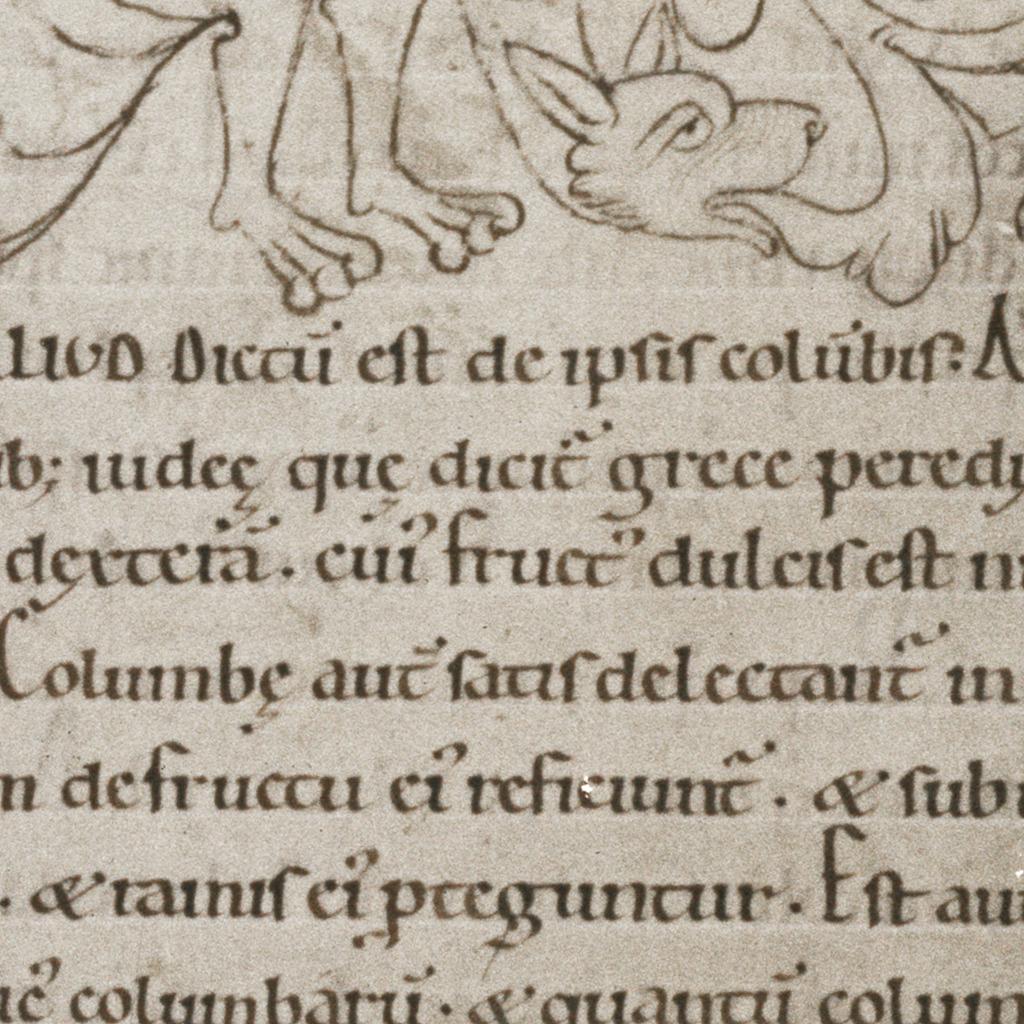 LIUD Dictū est de ipsis colūbis: A
ub; iudeę quę dicit᷑ grece peredi
dexterā. cui᾽ fruct᾽ dulcis est in
Columbę aut̄ satis delectant᷑ in
in de fructu ei᾽ reficiunt᷑. & subu
. & ramis ei᾽ pteguntur. Est aut
columbarū. & quantū colum